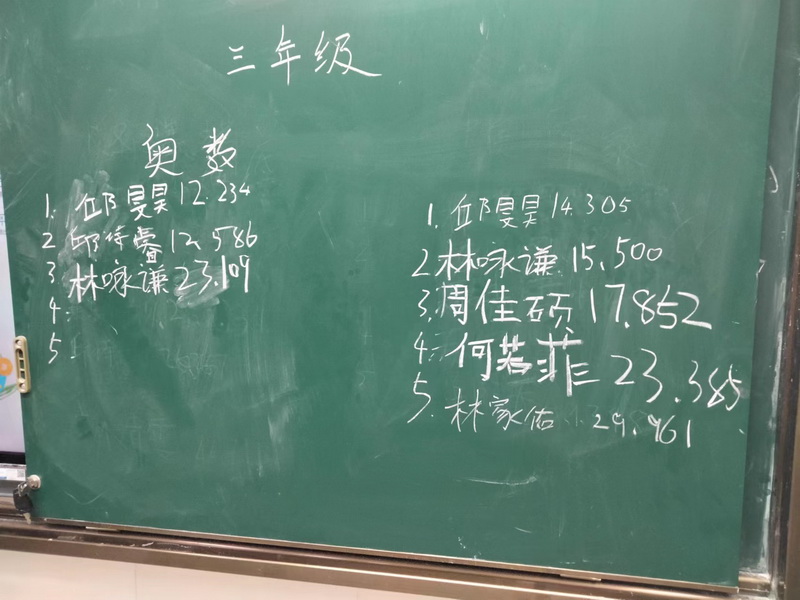 三年级
奥数
1. 邱旻昊 12.234
2 邱待馨 12.586
3 林咏谦 23.109
4.
5.
1. 邱旻昊 14.305
2 林咏谦 15.500
3. 周佳硕 17.852
4. 何若菲 23.385
5. 林家佑 29.961